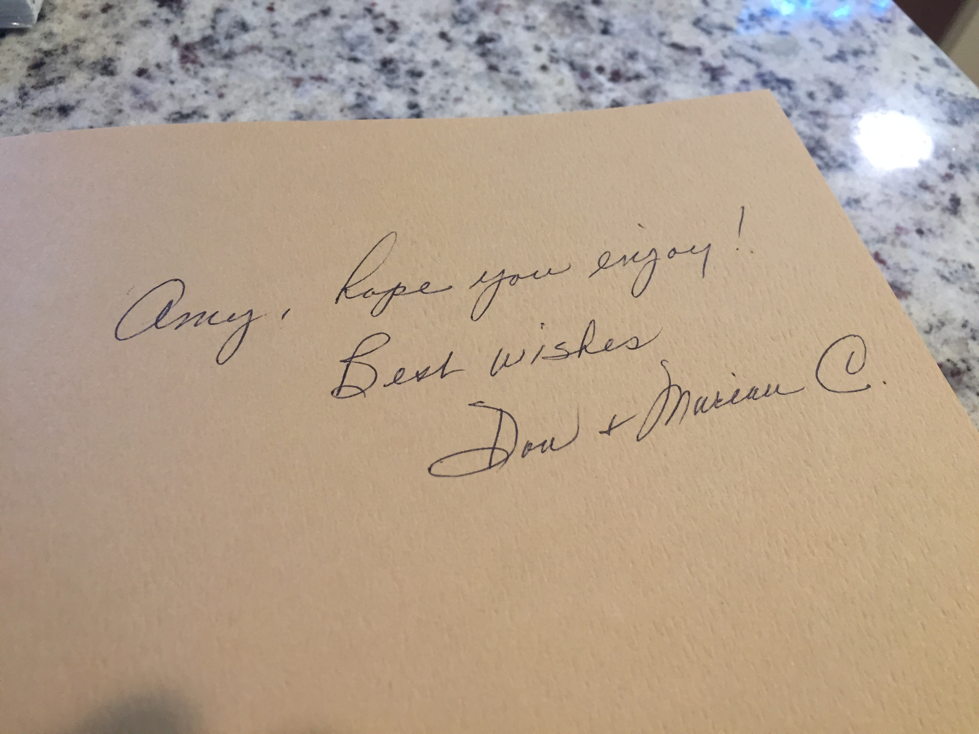 Amy, hope you enjoy!
Best wishes
Don + Marian C.